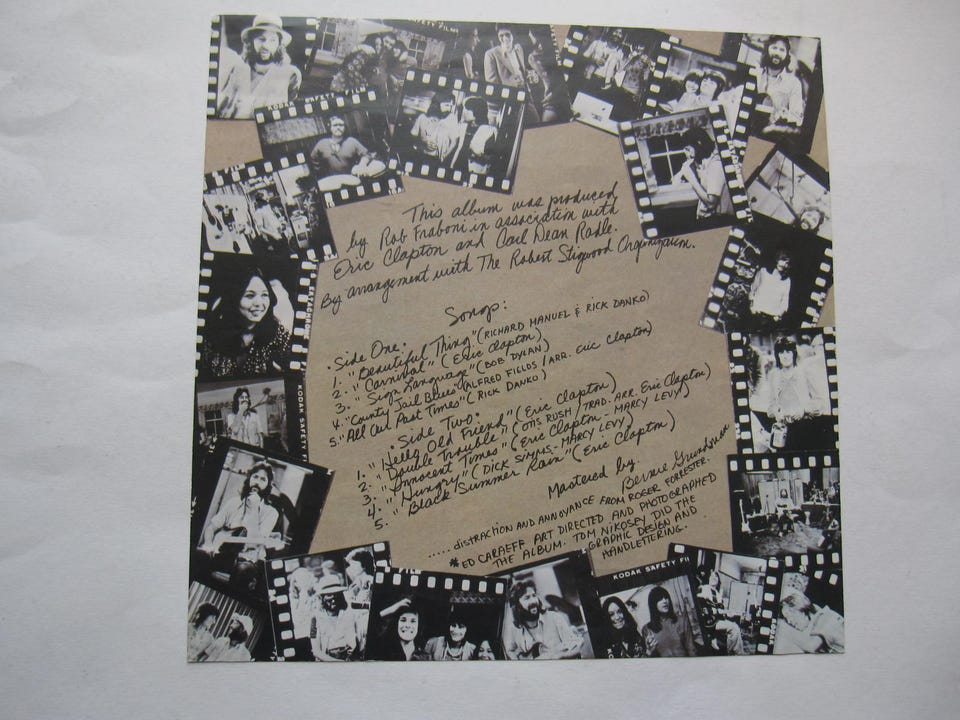 SAFETY FILM
KODAK SAFETY FILM
This album was produced
by Rob Fraboni in association with
Eric Clapton and Carl Dean Radle.
By arrangement with The Robert Stigwood Organization.
Songs:
• Side One •
1. "Beautiful Thing" (RICHARD MANUEL & RICK DANKO)
2. "Carnival" (Eric Clapton)
3. "Sign Language" (BOB DYLAN)
4. "County Jail Blues" (ALFRED FIELDS / ARR. Eric Clapton)
5. "All Our Past Times" (RICK DANKO)
• Side Two •
1. "Hello Old Friend" (Eric Clapton)
2. "Double Trouble" (OTIS RUSH / TRAD. ARR. Eric Clapton)
3. "Innocent Times" (Eric Clapton - MARCY LEVY)
4. "Hungry" (DICK SIMMS - MARCY LEVY)
5. "Black Summer Rain" (Eric Clapton)
Mastered by:
Bernie Grundman
..... DISTRACTION AND ANNOYANCE FROM ROGER FORRESTER.
*ED CARAEFF ART DIRECTED AND PHOTOGRAPHED
THE ALBUM. TOM NIKOSEY DID THE
GRAPHIC DESIGN AND
HANDLETTERING.
KODAK SAFETY FI
KODAK SAFETY F